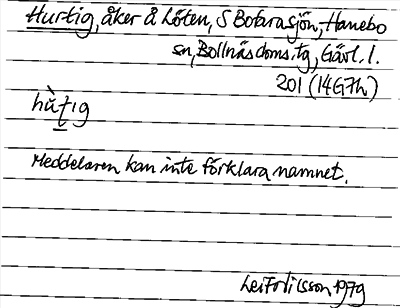 Hurtig, åker å Löten, S Bofarasjön, Hanebo
sn, Bollnäs doms.tg, Gävl. l.
201 (14G7h)
hù̀ţig
Meddelaren kan inte förklara namnet.
Leif Nilsson 1979